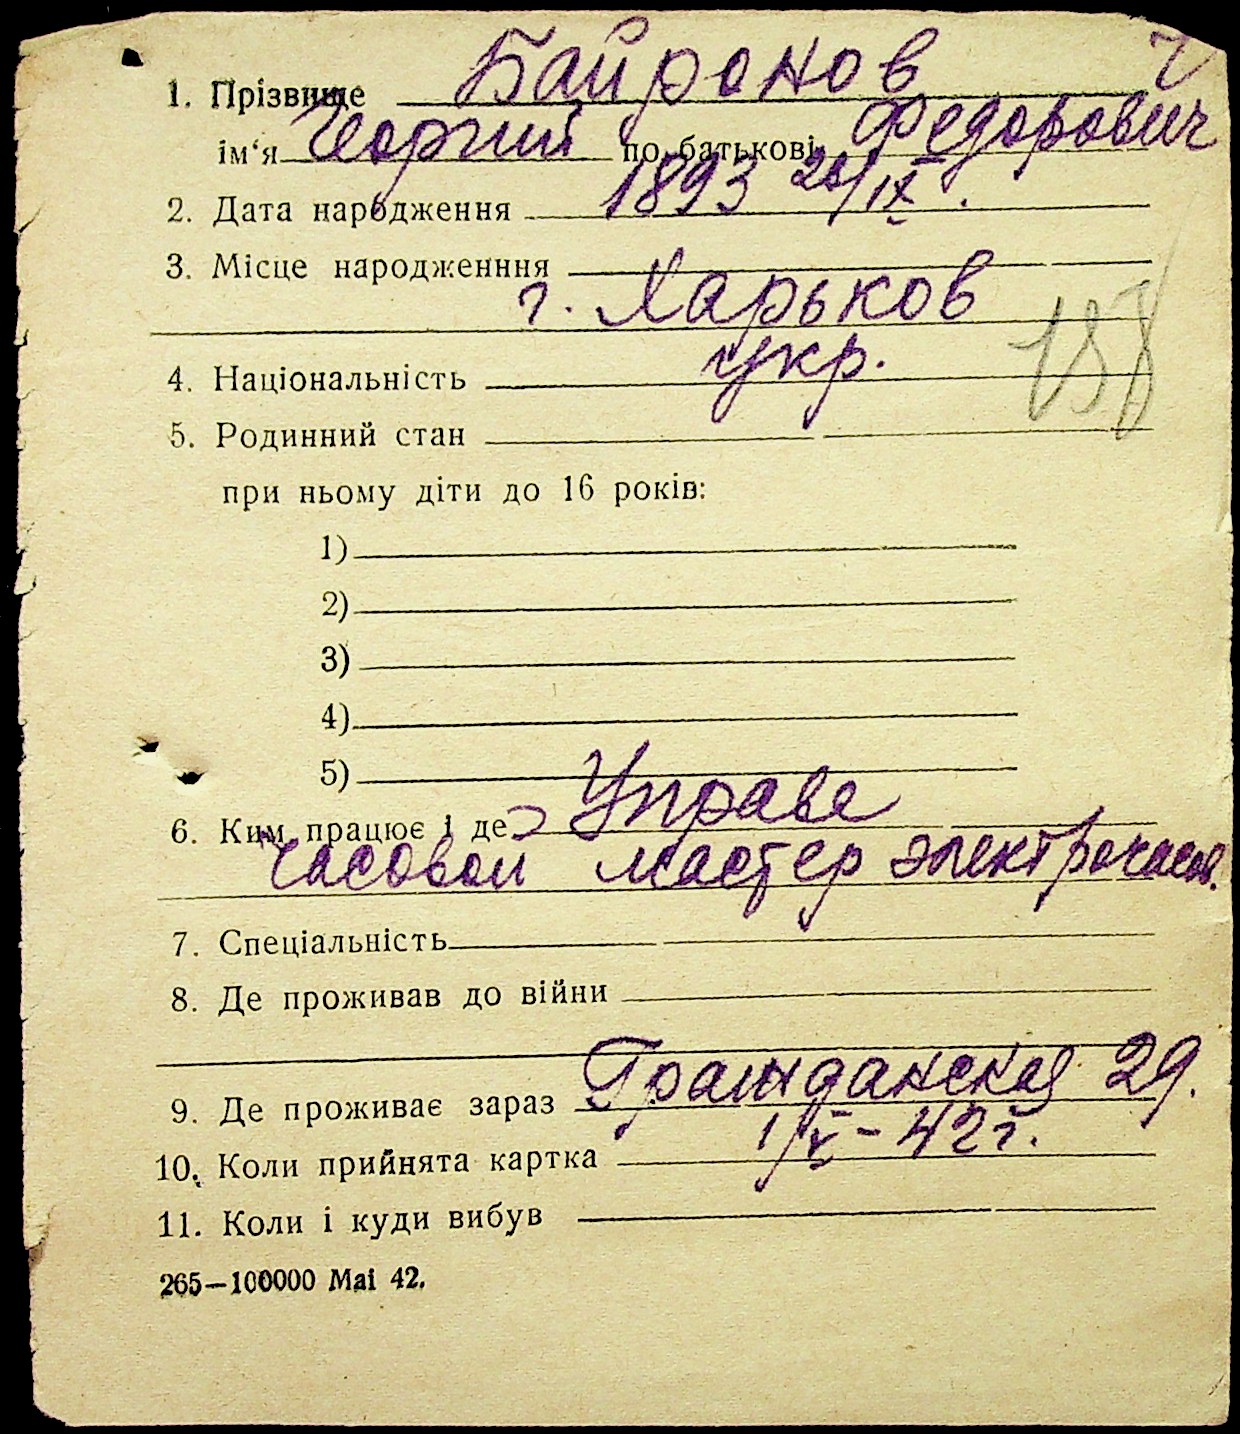 1. Прізвище Байронов
ім‘я Георгий по батькові Федорович
2. Дата народження 1893 20/IX.
3. Місце народженння
г. Харьков
4. Національність укр.
5. Родинний стан
при ньому діти до 16 років:
1)
2)
3)
4)
5)
6. Ким працює і де Управе
часовой мастер электрочасов.
7. Спеціальність
8. Де проживав до війни
9. Де проживає зараз Гражданская 29.
10. Коли прийнята картка 1/V-42 г.
11. Коли і куди вибув
265—100000 Mai 42.